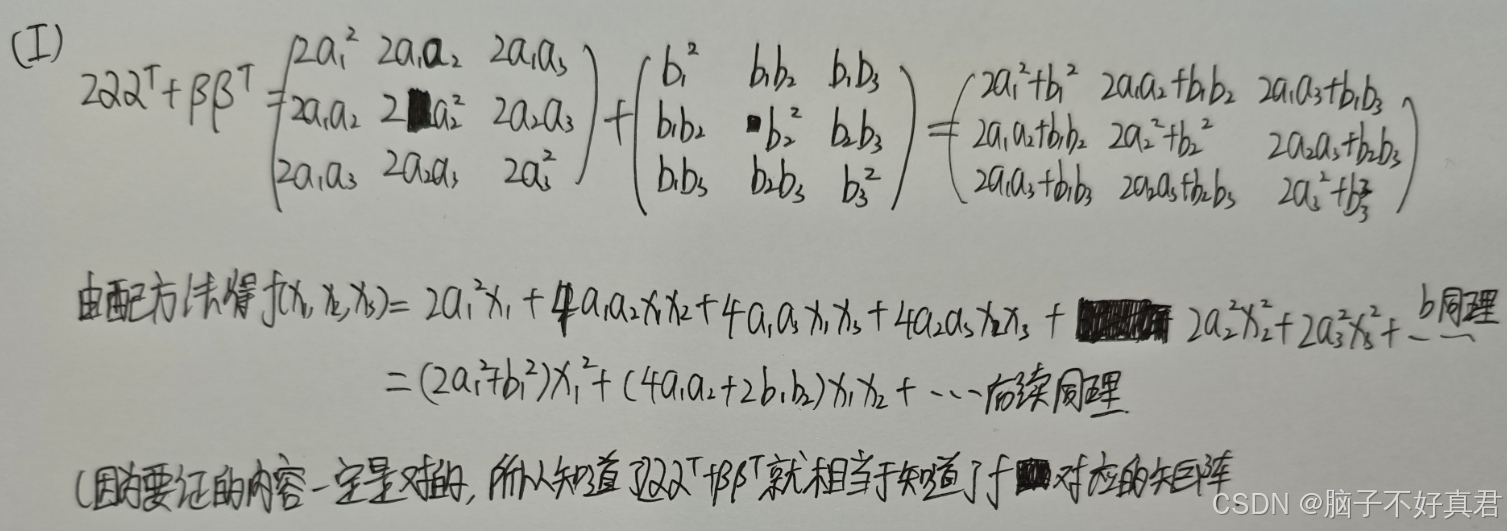 (I)
2αα^T + ββ^T = (2a₁² 2a₁a₂ 2a₁a₃) + (b₁² b₁b₂ b₁b₃) = (2a₁²+b₁² 2a₁a₂+b₁b₂ 2a₁a₃+b₁b₃)
(2a₁a₂ 2a₂² 2a₂a₃) (b₁b₂ b₂² b₂b₃) (2a₁a₂+b₁b₂ 2a₂²+b₂² 2a₂a₃+b₂b₃)
(2a₁a₃ 2a₂a₃ 2a₃²) (b₁b₃ b₂b₃ b₃²) (2a₁a₃+b₁b₃ 2a₂a₃+b₂b₃ 2a₃²+b₃²)
由配方法得f(x₁,x₂,x₃)= 2a₁²x₁ + 4a₁a₂x₁x₂ + 4a₁a₃x₁x₃ + 4a₂a₃x₂x₃ + 2a₂²x₂² + 2a₃²x₃² + b同理……
= (2a₁²+b₁²)x₁² + (4a₁a₂+2b₁b₂)x₁x₂ + …后续同理
(因为要证的内容一定是对的,所以知道了2αα^T+ββ^T就相当于知道了f对应的矩阵
CSDN @脑子不好真君